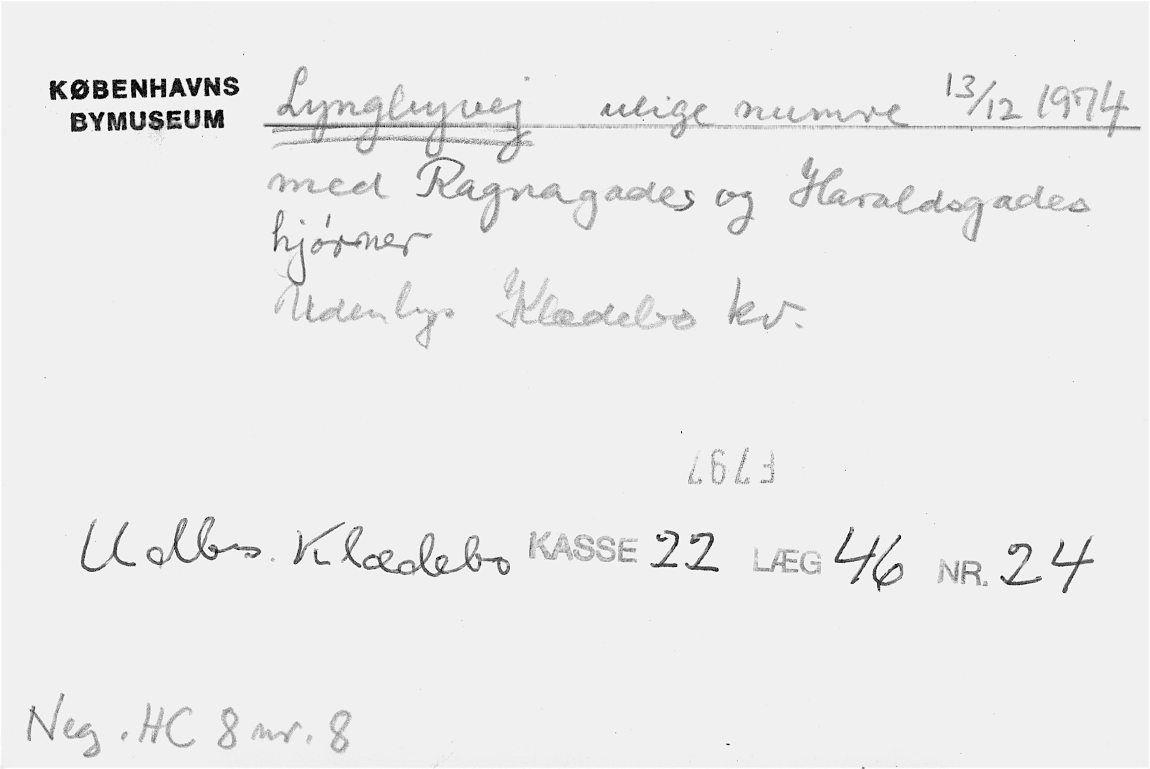 KØBENHAVNS
BYMUSEUM
Lyngbyvej ulige numre 13/12 1974
med Ragnagades og Haraldsgades
hjørner
Udenbys Klædebo kv.
F797
Udbs. Klædebo KASSE 22 LÆG 46 NR. 24
Neg. HC 8 nr. 8